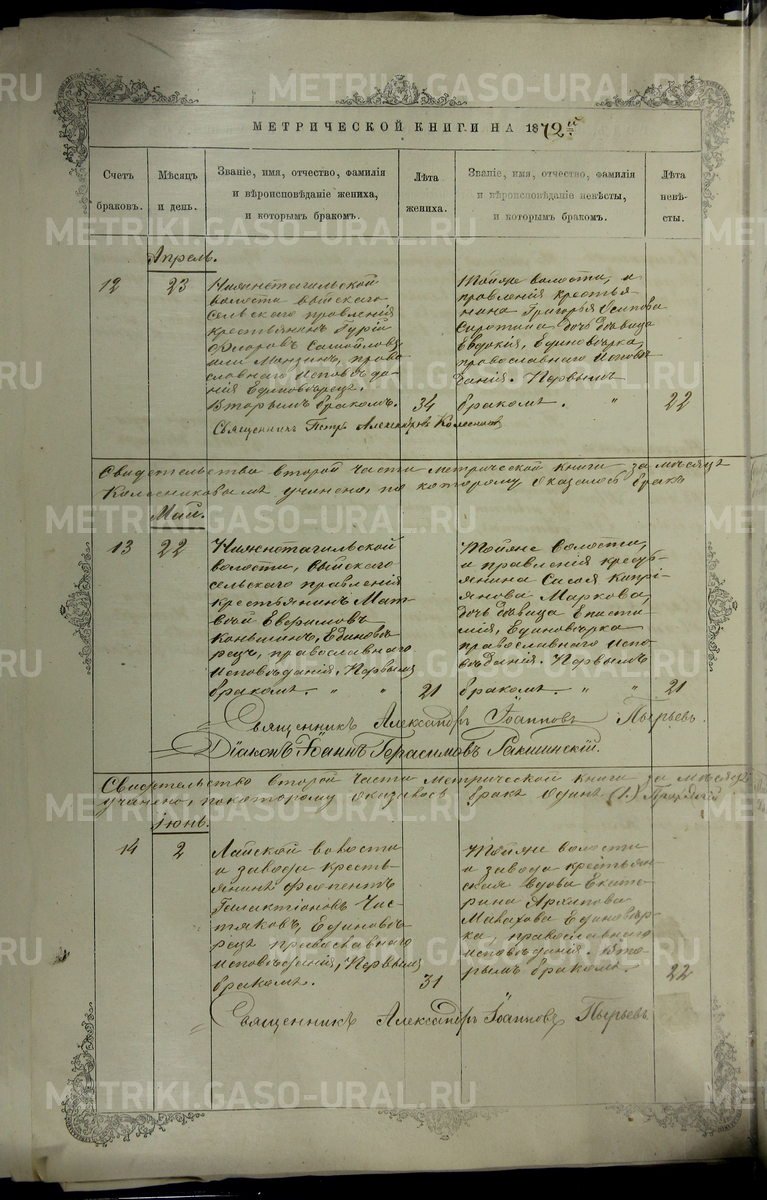 МЕТРИЧЕСКОЙ КНИГИ НА 1872
Счетъ браковъ.
Мѣсяцъ и день.
Званіе, имя, отчество, фамилія
и вѣроисповѣданіе жениха,
и которымъ бракомъ.
Лѣта жениха.
Званіе, имя, отчество, фамилія
и вѣроисповѣданіе невѣсты,
и которымъ бракомъ.
Лѣта невѣсты.
Апрель.
12
23
Нижнетагильской
волости Выйскаго
сельскаго правленія
крестьянинъ Гурій
Флоровъ
или право
славнаго исповѣда
нія Единовѣрецъ.
Вторымъ бракомъ.
34
Тойже волости, и
правленія крестья
нина Григорья Осипова
Сиротина дочь дѣвица
Евдокія, Единовѣрка,
православнаго испов
данія. Первымъ
бракомъ. "
22
Священникъ Петръ
Свидетельство второй части метрической книги за мѣсяцъ
учинено, по которому оказалось бракъ
Май.
13
22
Нижнетагильской
волости, Выйскаго
сельскаго правленія
крестьянинъ Мат
вѣй Евфимовъ
Коньшинъ, Единовѣ
рецъ, православнаго
исповѣданія, Первымъ
бракомъ. " "
21
Тойже волости,
и правленія кресть
янина Сысоя Кипрі
янова Маркова,
дочь дѣвица Анаста
сія, Единовѣрка
православнаго испо
вѣданія. Первымъ
бракомъ. " "
21
Священникъ Александръ Іоанновъ Пырьевъ.
Діаконъ Іоаннъ Герасимовъ
Свидетельство второй части метрической книги за мѣсяцъ
учинено, по которому оказалось бракъ одинъ (1.)
Іюнь.
14
2
Лайской волости
и завода кресть
янинъ Ферапонтъ
Галактіоновъ Чис
тяковъ, Единовѣ
рецъ православнаго
исповѣданія, Первымъ
бракомъ.
31
Тойже волости
и завода крестьян
ская вдова Екате
рина Архипова
Малахова Единовѣр
ка, православнаго
исповѣданія. Вто
рымъ бракомъ.
22
Священникъ Александръ Іоанновъ Пырьевъ
METRIKI.GASO-URAL.RU